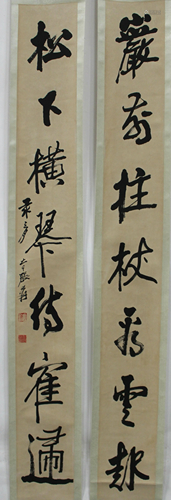 巖前拄杖看雲起
松下橫琴待寉歸